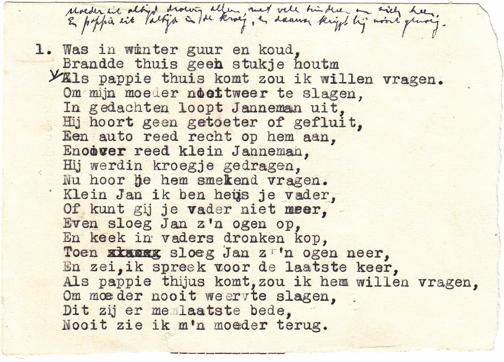 Moeder zit altijd droevig alleen met vele kinderen om zich heen
En pappie zit altijd in de kroeg, en daarvan krijgt hij nooit genoeg.
1. Was in winter guur en koud,
Brandde thuis geen stukje houtm
Als pappie thuis komt zou ik willen vragen.
Om mijn moeder nooitweer te slagen,
In gedachten loopt Janneman uit,
Hij hoort geen getoeter of gefluit,
Een auto reed recht op hem aan,
Enover reed klein Janneman,
Hij werdin kroegje gedragen,
Nu hoor je hem smekend vragen.
Klein Jan ik ben heus je vader,
Of kunt gij je vader niet meer,
Even sloeg Jan z'n ogen op,
En keek in vaders dronken kop,
Toen sloeg Jan z'n ogen neer,
En zei,ik spreek voor de laatste keer,
Als pappie thijus komt,zou ik hem willen vragen,
Om moeder nooit weervte slagen,
Dit zij er menlaatste bede,
Nooit zie ik m'n moeder terug.